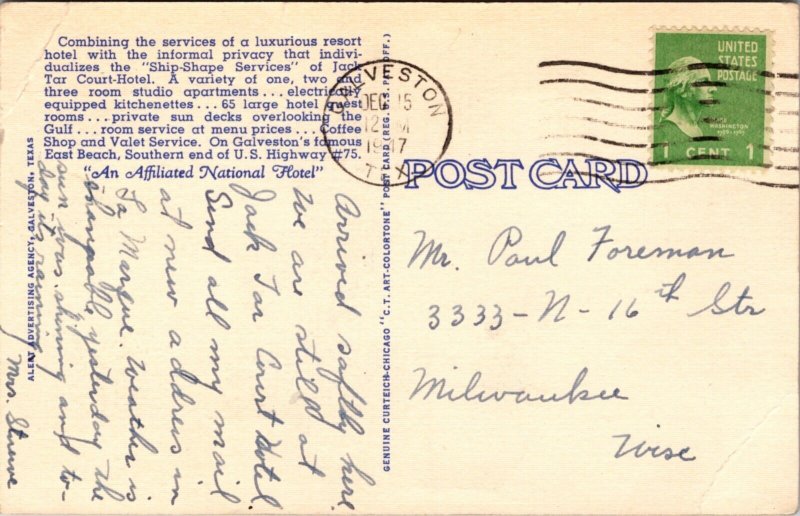 Combining the services of a luxurious resort
hotel with the informal privacy that indivi-
dualizes the "Ship-Shape Services" of Jack
Tar Court-Hotel. A variety of one, two and
three room studio apartments . . . electrically
equipped kitchenettes . . . 65 large hotel guest
rooms . . . private sun decks overlooking the
Gulf . . . room service at menu prices . . . Coffee
Shop and Valet Service. On Galveston's famous
East Beach, Southern end of U.S. Highway #75.
"An Affiliated National Hotel"
Arrived saftly here
We are still at
Jack Tar Court Hotel
Send all my mail
at new address in
La Marque. Weather is
changable yesterday the
sun was shining and to-
day its raining
Mrs. Struve
ALERT ADVERTISING AGENCY, GALVESTON, TEXAS
GENUINE CURTEICH-CHICAGO "C.T. ART-COLORTONE" POST CARD (REG. U.S. PAT. OFF.)
GALVESTON
DEC 15
12 M
1947
TEX
UNITED
STATES
POSTAGE
WASHINGTON
1789-1797
1 CENT 1
POST CARD
Mr. Paul Foreman
3333-N-16th Str
Milwaukee
Wisc